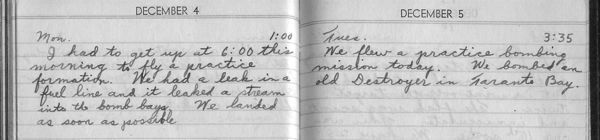 DECEMBER 4
Mon. 1:00
I had to get up at 6:00 this
morning to fly a practice
formation. We had a leak in a
fuel line and it leaked a stream
into the bomb bays. We landed
as soon as possible
DECEMBER 5
Tues. 3:35
We flew a practice bombing
mission today. We bombed an
old Destroyer in Taranto Bay.